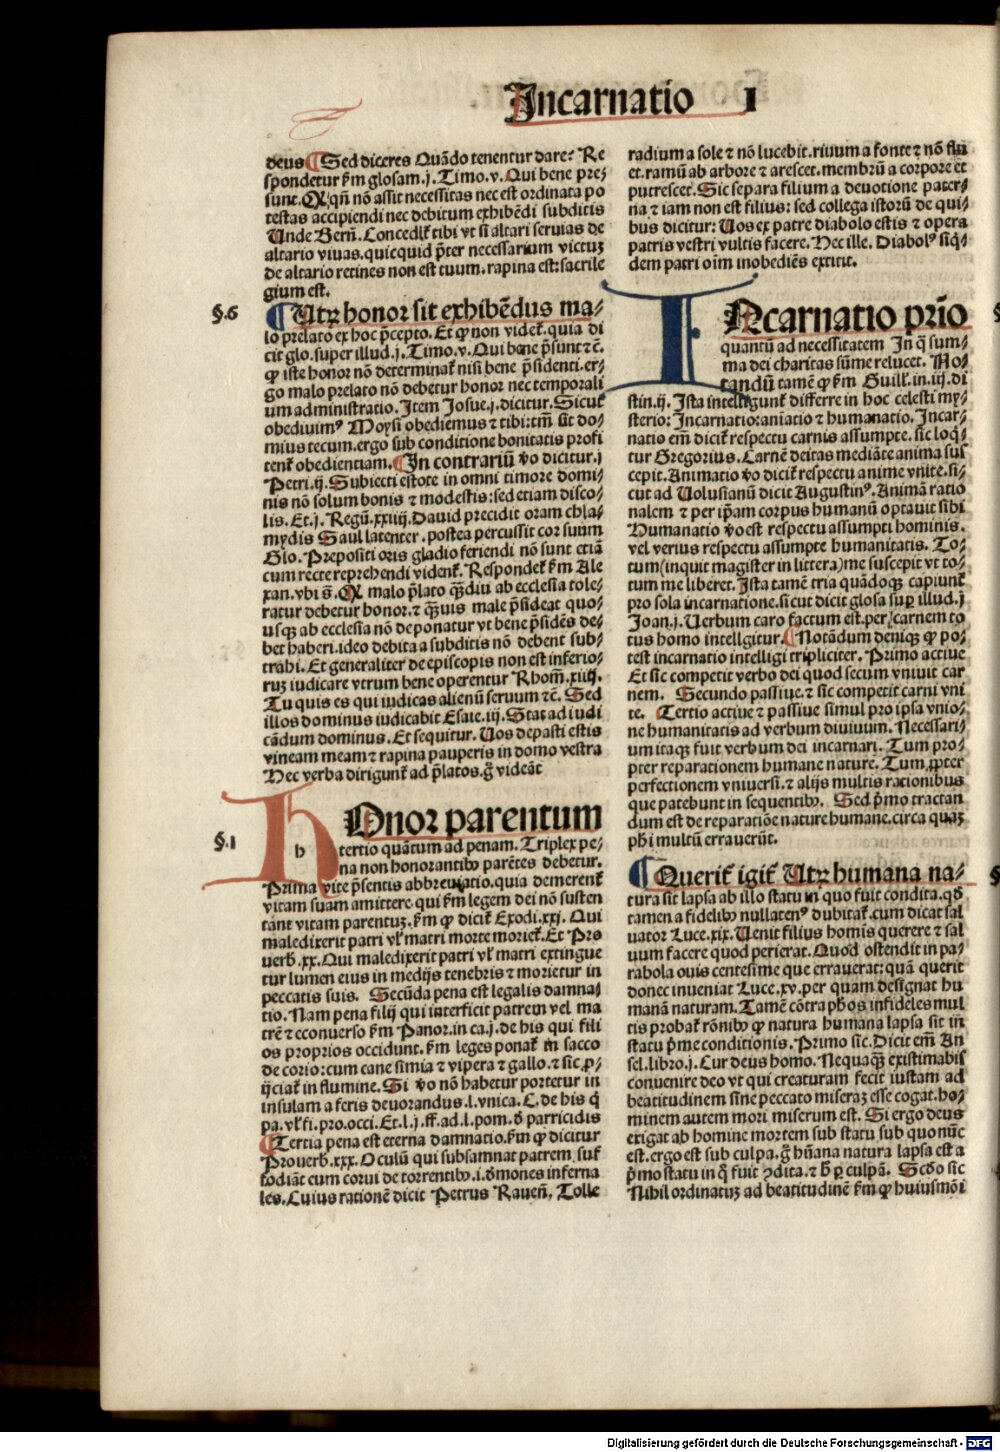 Incarnatio I
deus ¶ Sed diceres Quãdo tenentur dare? Re
spondetur ẜm glosam .j. Timo. v. Qui bene pre-
sunt. Qꝛ qñ nõ assit necessitas nec est ordinata po
testas accipiendi nec debitum exhibẽdi subditis
Unde Berñ. Concedit̃ tibi vt si altari seruias de
altario viuas. quicquid p̃ter necessarium victuȝ
de altario retines non est tuum. rapina est: sacrile
gium est.
§.6 ¶ Utꝝ honor sit exhibẽdus ma-
lo prelato ex hoc p̃cepto. Et ꝙ non videt̃. quia di
cit glo. super illud .j. Timo. v. Qui bene p̃sunt ⁊c̃.
ꝙ iste honor nõ determinat̃ nisi bene p̃sidenti. er-
go malo prelato nõ debetur honor nec temporali
um administratio. Item Josue .j. dicitur. Sicut
obediuimꝰ Moysi obediemus ⁊ tibi: tm̃ sit do-
mius tecum. ergo sub conditione bonitatis profi
tent̃ obedientiam. ¶ In contrariũ v̊o dicitur .j
Petri .ij. Subiecti estote in omni timore domi-
nis nõ solum bonis ⁊ modestis: sed etiam disco-
lis. Et .j. Regũ. xxiiij. Dauid precidit oram chla-
mydis Saul latenter. postea percussit cor suum
Glo. Prepositi oris gladio feriendi nõ sunt etiã
cum recte reprehendi vident̃. Respondet̃ ẜm Ale
xan. vbi s̃. Qꝛ malo p̃lato qȝdiu ab ecclesia tole-
ratur debetur honor. ⁊ q̃uis male p̃sideat quo-
usqȝ ab ecclesia nõ deponatur vt bene p̃sidẽs de-
bet haberi. ideo debita a subditis nõ debent sub-
trahi. Et generaliter de episcopis non est inferio-
ruȝ iudicare vtrum bene operentur Rhom̃. xiiij.
Tu quis es qui iudicas alienũ seruum ⁊c̃. Sed
illos dominus iudicabit Esaie. iij. Stat ad iudi
cãdum dominus. Et sequitur. Uos depasti estis
vineam meam ⁊ rapina pauperis in domo vestra
Hec verba dirigunt̃ ad p̃latos. g̊ videãt
§.1 HOnor parentum
tertio quãtum ad penam. Triplex pe-
na non honorantibꝰ parẽtes debetur.
Prima vite p̃sentis abbreuiatio. quia demerent̃
vitam suam amittere qui ẜm legem dei nõ susten
tant vitam parentuȝ. ẜm ꝙ dicit̃ Exodi. xxj. Qui
maledixerit patri vl̃ matri morte moriet̃. Et Pro
uerb̃. xx. Qui maledixerit patri vl̃ matri extingue
tur lumen eius in medijs tenebris ⁊ morietur in
peccatis suis. Secũda pena est legalis damna-
tio. Nam pena filij qui interficit patrem vel ma
trẽ ⁊ econuerso ẜm Panor. in ca. j. de his qui fili
os proprios occidunt. ẜm leges ponat̃ in sacco
de corio: cum cane simia ⁊ vipera ⁊ gallo. ⁊ sic ꝓ-
ijciat̃ in flumine. Si v̊o nõ habetur portetur in
insulam a feris deuorandus. l. vnica. C. de his q̃
pa. vl̃ fi. pro. occi. Et. l. j. ff. ad. l. pom. d̕ parricidis
¶ Tertia pena est eterna damnatio. ẜm ꝙ dicitur
Prouerb̃. xxx. Oculũ qui subsannat patrem suf
fodiãt eum corui de torrentibꝰ .i. d̕mones inferna
les. Cuius rationẽ dicit Petrus Raueñ. Tolle
radium a sole ⁊ nõ lucebit. riuum a fonte ⁊ nõ flu
et. ramũ ab arbore ⁊ arescet. membrũ a corpore et
putrescet. Sic separa filium a deuotione pater-
na ⁊ iam non est filius: sed collega istorũ de qui-
bus dicitur: Uos ex patre diabolo estis ⁊ opera
patris vestri vultis facere. Hec ille. Diabolꝰ siq̃-
dem patri oĩm inobediẽs extitit.
INcarnatio prĩo
quantũ ad necessitatem In q̃ sum-
ma dei charitas sũme relucet. No-
tandũ tamẽ ꝙ ẜm Guill̃. in. iij. di
stin. ij. Ista intelligunt̃ differre in hoc celesti my-
sterio: Incarnatio: aniatio ⁊ humanatio. Incar-
natio em̃ dicit̃ respectu carnis assumpte. sic loq̃-
tur Gregorius. Carnẽ deitas mediãte anima sus
cepit. Animatio v̊o dicit̃ respectu anime vnite. si-
cut ad Uolusianũ dicit Augustinꝰ. Animã ratio
nalem ⁊ per ip̃am corpus humanũ optauit sibi
Humanatio v̊o est respectu assumpti hominis.
vel verius respectu assumpte humanitatis. To-
tum (inquit magister in littera) me suscepit vt to-
tum me liberet. Ista tamẽ tria quãdoqȝ capiunt̃
pro sola incarnatione. sicut dicit glosa suꝑ illud .j
Joan. j. Uerbum caro factum est. per carnem to
tus homo intelligitur. ¶ Notãdum deniqȝ ꝙ po-
test incarnatio intelligi tripliciter. Primo actiue
Et sic competit verbo dei quod secum vniuit car
nem. Secundo passiue. ⁊ sic competit carni vni
te. Tertio actiue ⁊ passiue simul pro ipsa vnio-
ne humanitatis ad verbum diuinum. Necessari-
um itaqȝ fuit verbum dei incarnari. Tum pro-
pter reparationem humane nature. Tum ꝓpter
perfectionem vniuersi. ⁊ alijs multis rationibus
que patebunt in sequentibꝰ. Sed p̃mo tractan
dum est de reparatiõe nature humane. circa quaȝ
ph̃i multũ errauerũt.
¶ Querit̃ igit̃ Utꝝ humana na-
tura sit lapsa ab illo statu in quo fuit condita. qd̕
tamen a fidelibꝰ nullatenꝰ dubitat̃. cum dicat sal
uator Luce. xix. Uenit filius homis querere ⁊ sal
uum facere quod perierat. Quod ostendit in pa-
rabola ouis centesime que errauerat: quã querit
donec inueniat Luce. xv. per quam designat hu
manã naturam. Tamẽ cõtra ph̃os infideles mul
tis probat̃ rõnibꝰ ꝙ natura humana lapsa sit in
statu p̃me conditionis. Primo sic. Dicit em̃ An
sel. libro. j. Cur deus homo. Nequaqȝ existimabis
conuenire deo vt qui creaturam fecit iustam ad
beatitudinem sine peccato miseraȝ esse cogat. ho-
minem autem mori miserum est. Si ergo deus
exigat ab homine mortem sub statu sub quo nũc
est. ergo est sub culpa. g̊ hũana natura lapsa est a
p̃mo statu in q̊ fuit ꝯdita. ⁊ h̃ ꝑ culpã. Scd̕o sic
Nihil ordinatuȝ ad beatitudinẽ ẜm ꝙ huiusmõi
Digitalisierung gefördert durch die Deutsche Forschungsgemeinschaft - DFG